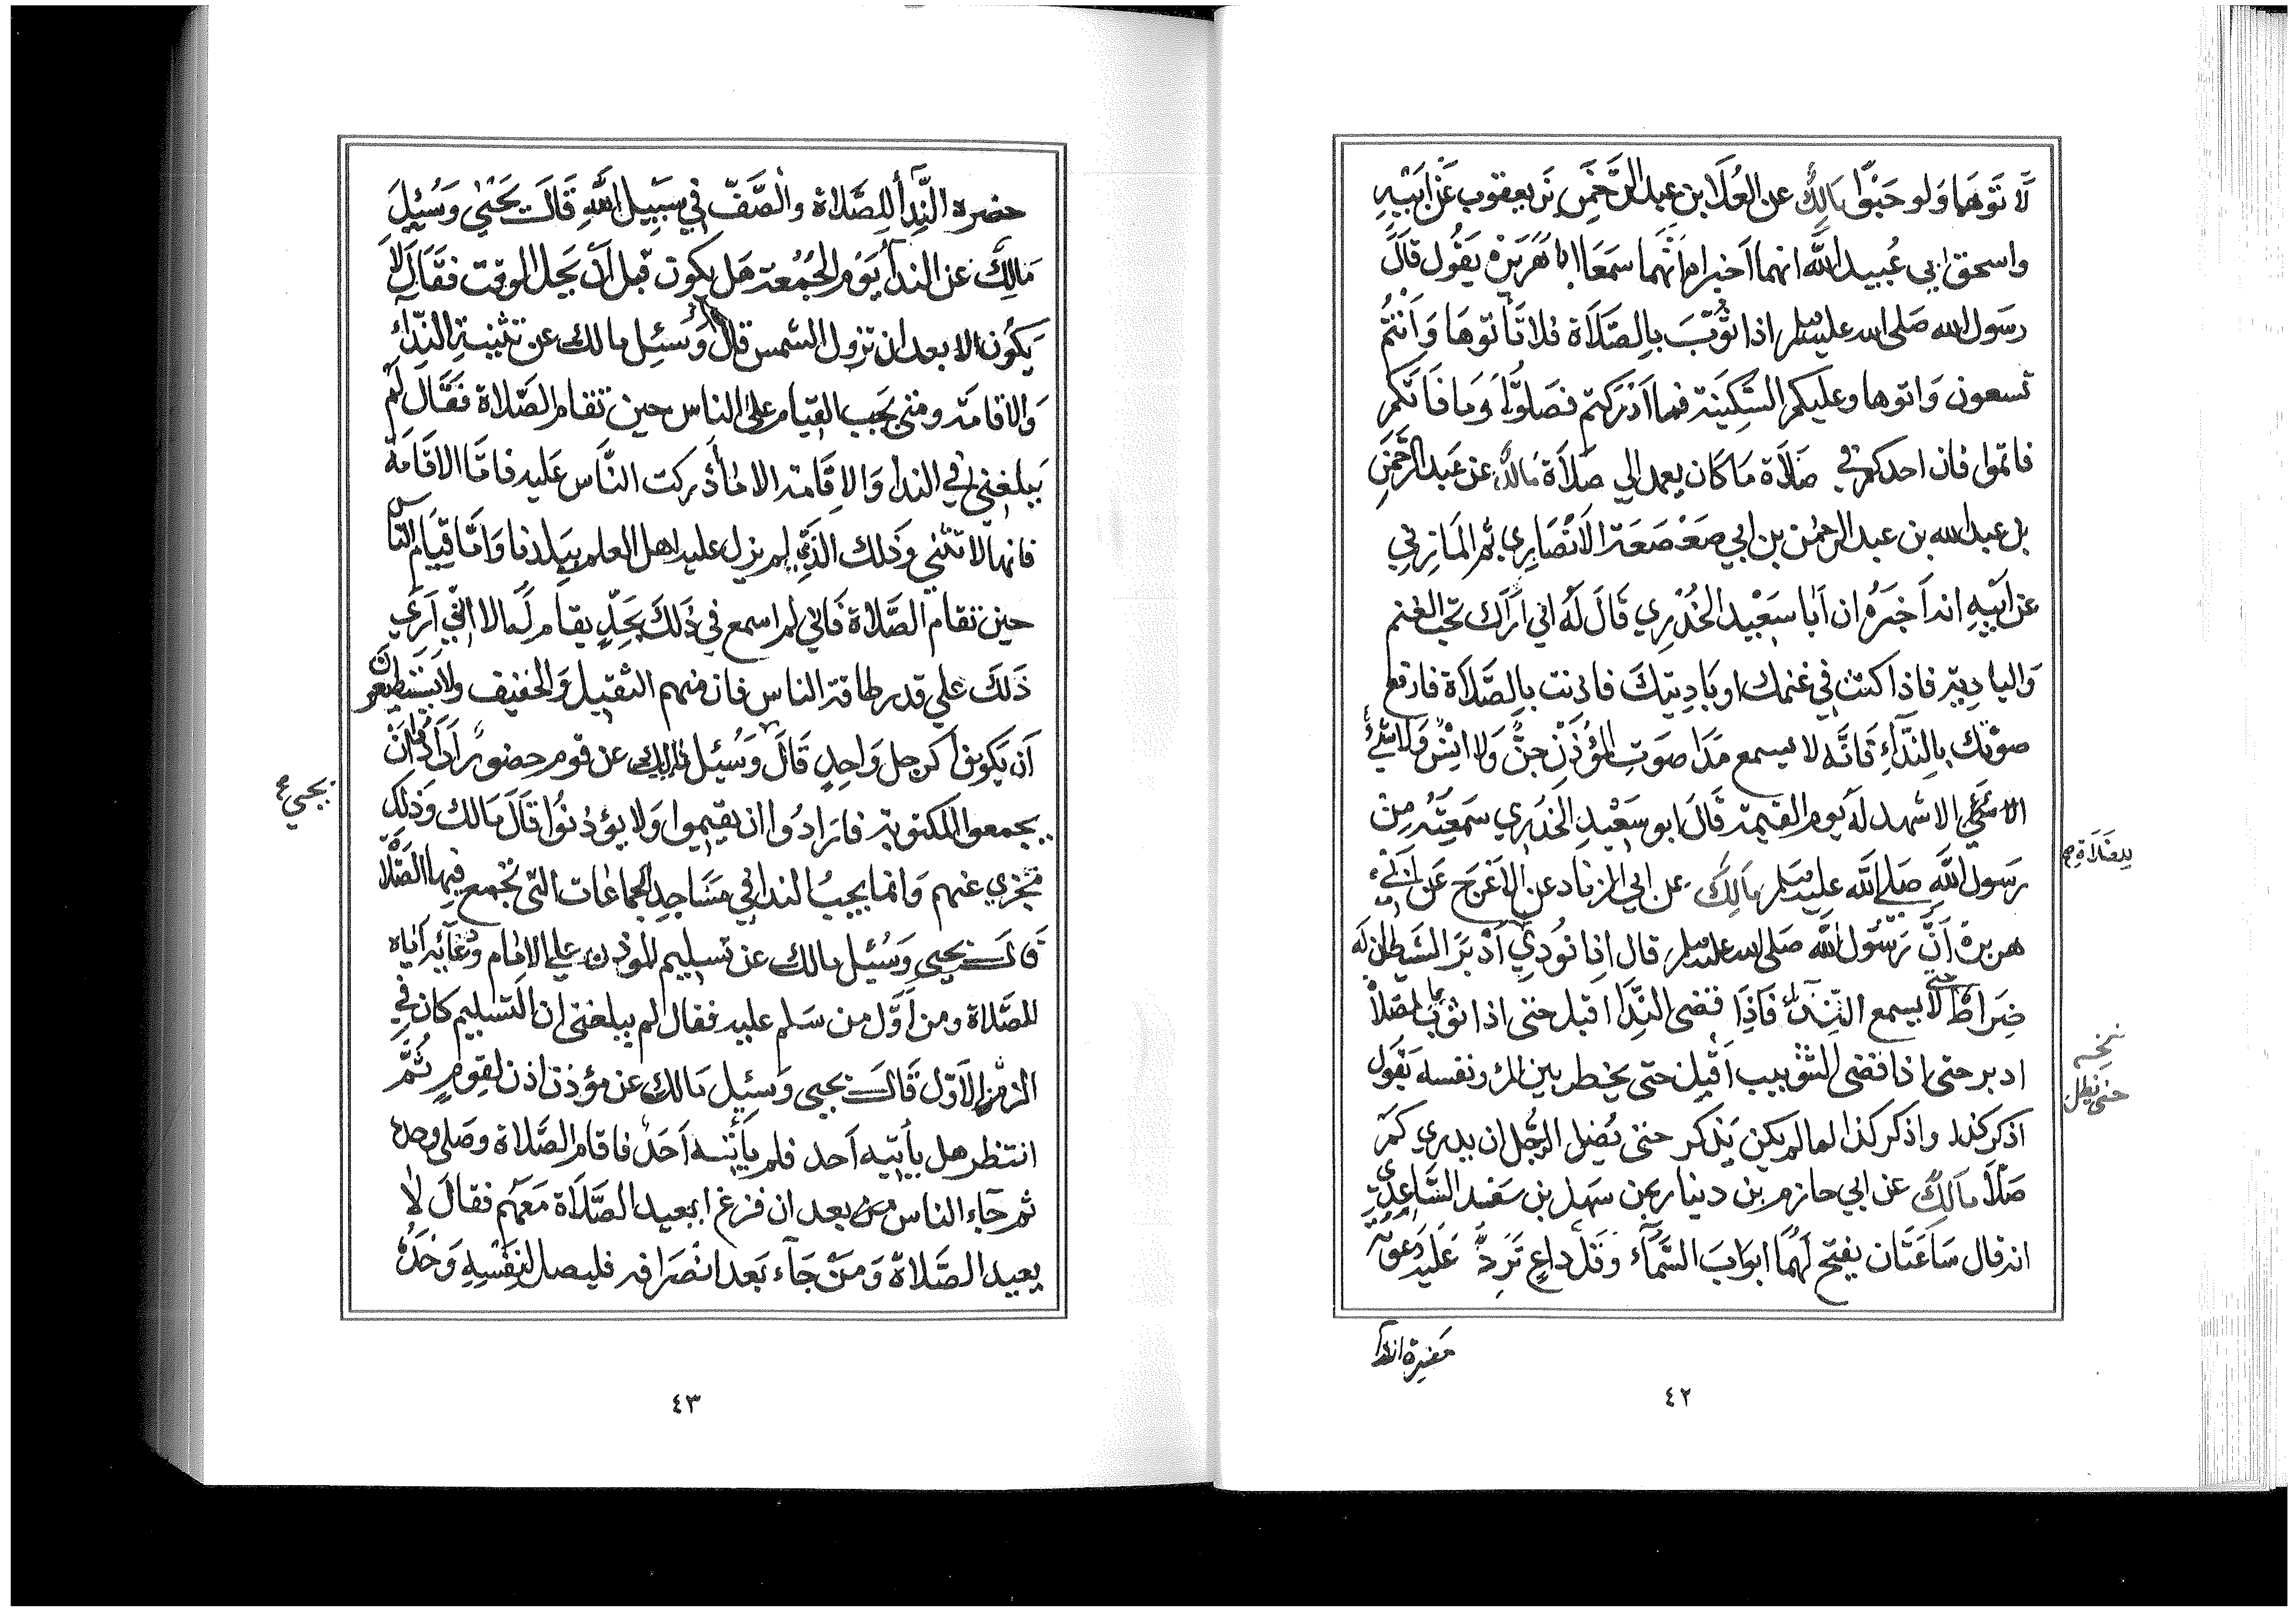 لَاتَوْهَا وَلو حَبْوًا مَالِكٌ عن العُلَا بن عبد الرَّحْمَنِ بَن يعقوب عَنْ ابَيْهِ
واسحق ابي عُبيد اللَّه انهما اَخبرا مِ انَّهما سمَعَا ابا هُرَيَرْةَ يَقُول قَالَ
رسَول الله صَلى الله عليه وسلم اذا ثُوِّبَ بِالصَّلَاة فلا تَأتوهَا وَاَنْتُمْ
تسعون وَاتوها وعليكم السَّكِينَة فما اَدْرَكتم فصَلوَّا وَمَا فَاتَكُمْ
فاتموا فان احدكم في صَلَاة مَا كَان يعمد الي صَلَاة مَالكٌ عن عَبد الرَّحْمَنِ
بن عبد الله بن عبد الرحمٰن بن ابي صَعْصَعَة الاَنْصَارِي ثم المَازِني
عن اَبيِهِ انه اَخبَرَهُ ان اَبا سَعْيد الخُدْرِي قَالَ لَهُ اني اَرَاك تحب الغنم
وَالبادِية فاذا كنت في غنمك او بَادِيتِكَ فاذنت بِالصَّلَاة فارفع
صَوْتك بِالنِّدَآءِ فَانَّه لا يسمع مَدَا صَوتِ المُؤَذِنِ جِنٌّ وَلا انْسٌ وَلا شَيْءٌ
الا شهد لَهُ يَوم القيمة قَالَ ابو سَعْيدِ الخُدَرِي سَمِعَتُه مِنْ
للصَلَاةِ صح
رَسول اللَّه صَلى اللَّه عليه وسلم مَالِكٌ عن ابي الزناد عن الاَعْرَج عَن اَبِيْ
هريرة اَنَّ رَسُول اللَّه صَلى الله عليه وسلم قال اذا نُودِيَ اَدْبَرَ الشَيطان لَه
ضِرَاطٌ حتى لَا يسمع النِّدَآ فَاذَا قضى النِّدَا اَقبل حتى اذا ثوب بِالصَلَاة
نسخه
ادبر حتى اذا قضى التثويب اَقْبَل حتى يخطر بين المرُ ونفسه يَقُول
حتى يظل
اذكر كذا واذكر كذا لما لم يكن يَذكر حتى يُضل الرَّجُل ان يدري كمْ
صَلَّا مَالِكٌ عن ابي حازم بن دينار عن سهل بن سَعْد السَّاعِدِيِّ
انه قال سَاعَتَان يفتح لَهُمَا ابوَابَ السَّمَآءِ وَقَلَّ داعٍ تَرِدُّ عَلَيه دَعوَته
٤٢
حضرهِ النِّدَآ لِلصَّلاة والصَّفّ في سَبِيلِ اللَّهِ قَالَ يَحْيَي وَسُئِلَ
مَالِكٌ عن الندآ يَوم الجُمُعَة هَل يكون قبل اَنْ يَحِل الوقت فقَالَ لَا
يَكُون الا بعد ان تزول الشمس قال وَسُئِل مالك عن تثنية النِّدَآءِ
وَالاقامَة ومتى يَجب القيام على الناس حين تقام الصَّلاة فَقَالَ لَمْ
يَبلغني في الندا وَالاِقَامة الا مَا أَدْركت النَّاس عَليه فامَّا الاقَامَة
فانها لا تثني وَذَلك الذي لم يزل عليه اهل العلم بِبَلدنا وَاَمَّا قِيَام النَّاس
حين تقام الصَّلَاة فَاني لم اسمع في ذَلكَ بِحَدٍّ يقام لَه الا اني اَرَي
ذَلكَ علي قدر طاقة الناس فان منهم الثقيل وَالخفيف ولا يَسْتطيعُونَ
اَن يَكونوا كرجل وَاحِدٍ قَالَ وَسُئِل مالك عن قوم حضورٌ اَرَادُوا اَنْ
يجمعوا المكتوبة فارَادُوا ان يقيموا وَلا يؤذنُوا قَالَ مَالك وَذلك
يحيي
مجْزي عنهم وَانما يجبُ الندا في مَسَاجِدِ الجماعَات التى تجْمع فيها الصَّلَاة
قَالَ يحيي وَسُئِل مالك عن تسليم المؤذن علي الامام وَدُعَآئِه اَياه
للصَّلاة ومن اَوَّل من سَلم عليه فقال لم يبلغنى ان التسليم كان في
الزمَنِ الاَوَّل قَالَ يحيى وَسُئِل مَالك عن مؤذن اذن لقومٍ ثُمَّ
انتظر هل يأتيه اَحد فلم يَأتِه اَحَدٌ فاقام الصَّلاة وصَلى وحده
ثم جَاء الناس مِن بعد ان فرغ ايعيد الصَّلَاة مَعَهم فقالَ لا
يعيد الصَّلاة وَمَنْ جَآء بَعد انْصَرافه فليصل لِنَفْسِهِ وَحْدَهُ
٤٣